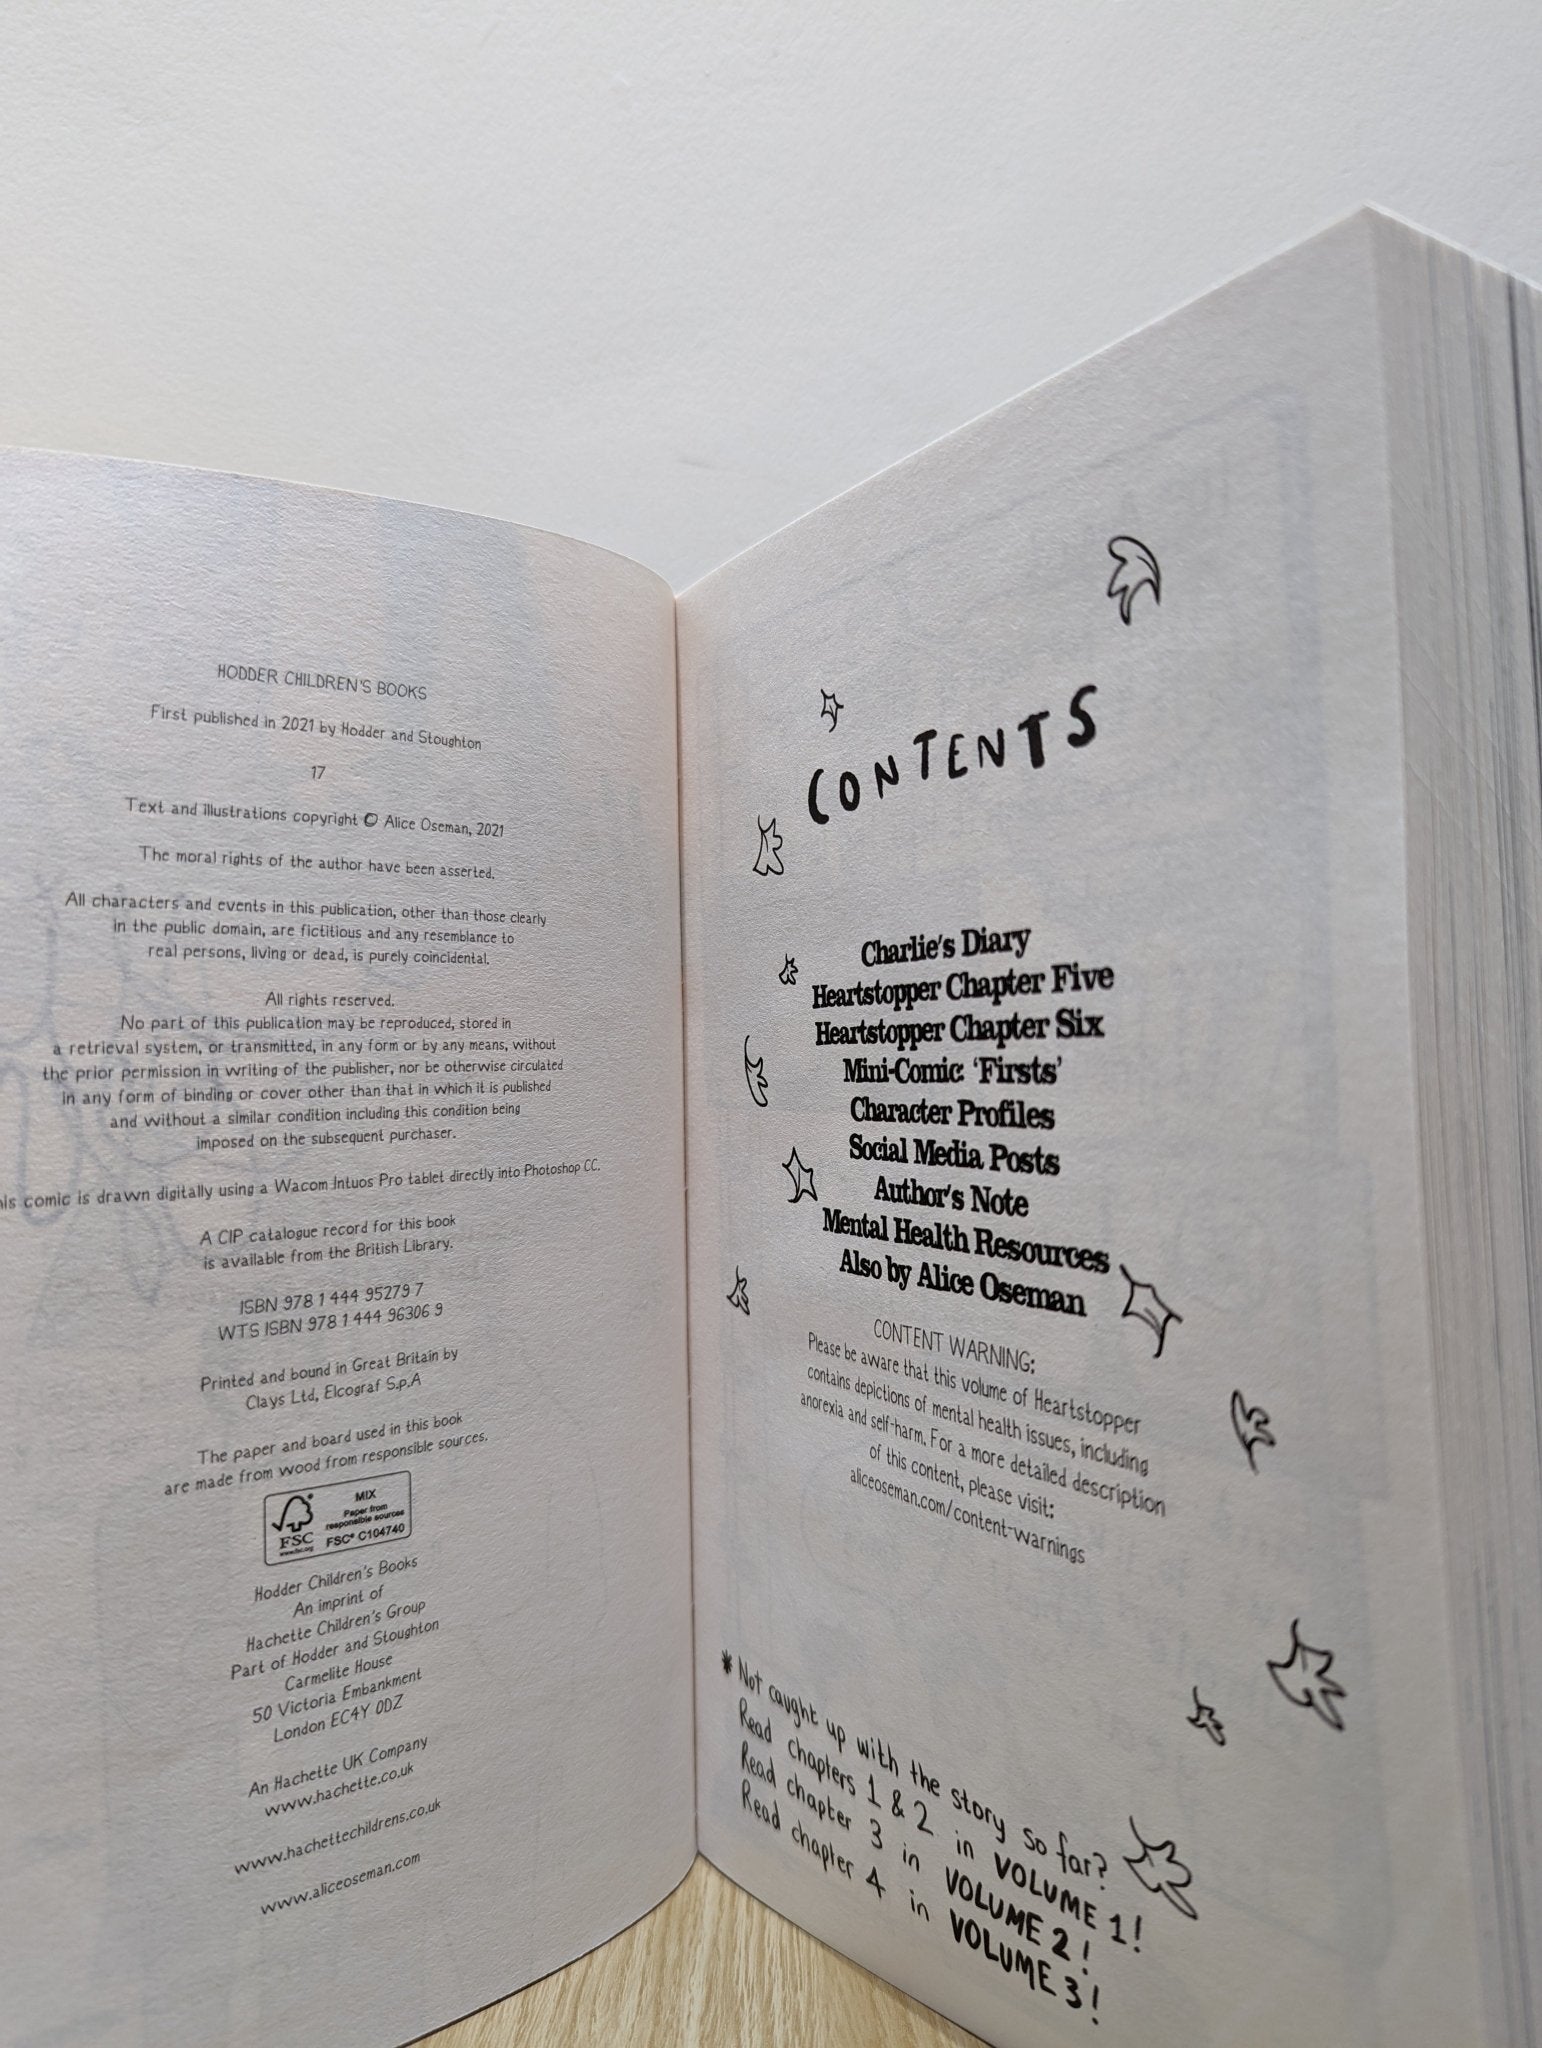 HODDER CHILDREN'S BOOKS
First published in 2021 by Hodder and Stoughton
17
Text and illustrations copyright © Alice Oseman, 2021
The moral rights of the author have been asserted.
All characters and events in this publication, other than those clearly
in the public domain, are fictitious and any resemblance to
real persons, living or dead, is purely coincidental.
All rights reserved.
No part of this publication may be reproduced, stored in
a retrieval system, or transmitted, in any form or by any means, without
the prior permission in writing of the publisher, nor be otherwise circulated
in any form of binding or cover other than that in which it is published
and without a similar condition including this condition being
imposed on the subsequent purchaser.
comic is drawn digitally using a Wacom Intuos Pro tablet directly into Photoshop CC.
A CIP catalogue record for this book
is available from the British Library.
ISBN 978 1 444 95279 7
WTS ISBN 978 1 444 96306 9
Printed and bound in Great Britain by
Clays Ltd, Elcograf S.p.A
The paper and board used in this book
are made from wood from responsible sources.
MIX
Paper from
responsible sources
FSC® C104740
FSC
www.fsc.org
Hodder Children's Books
An imprint of
Hachette Children's Group
Part of Hodder and Stoughton
Carmelite House
50 Victoria Embankment
London EC4Y 0DZ
An Hachette UK Company
www.hachette.co.uk
www.hachettechildrens.co.uk
www.aliceoseman.com
CONTENTS
Charlie's Diary
Heartstopper Chapter Five
Heartstopper Chapter Six
Mini-Comic: 'Firsts'
Character Profiles
Social Media Posts
Author's Note
Mental Health Resources
Also by Alice Oseman
CONTENT WARNING:
Please be aware that this volume of Heartstopper
contains depictions of mental health issues, including
anorexia and self-harm. For a more detailed description
of this content, please visit:
aliceoseman.com/content-warnings
* Not caught up with the story so far?
Read chapters 1 & 2 in VOLUME 1!
Read chapter 3 in VOLUME 2!
Read chapter 4 in VOLUME 3!